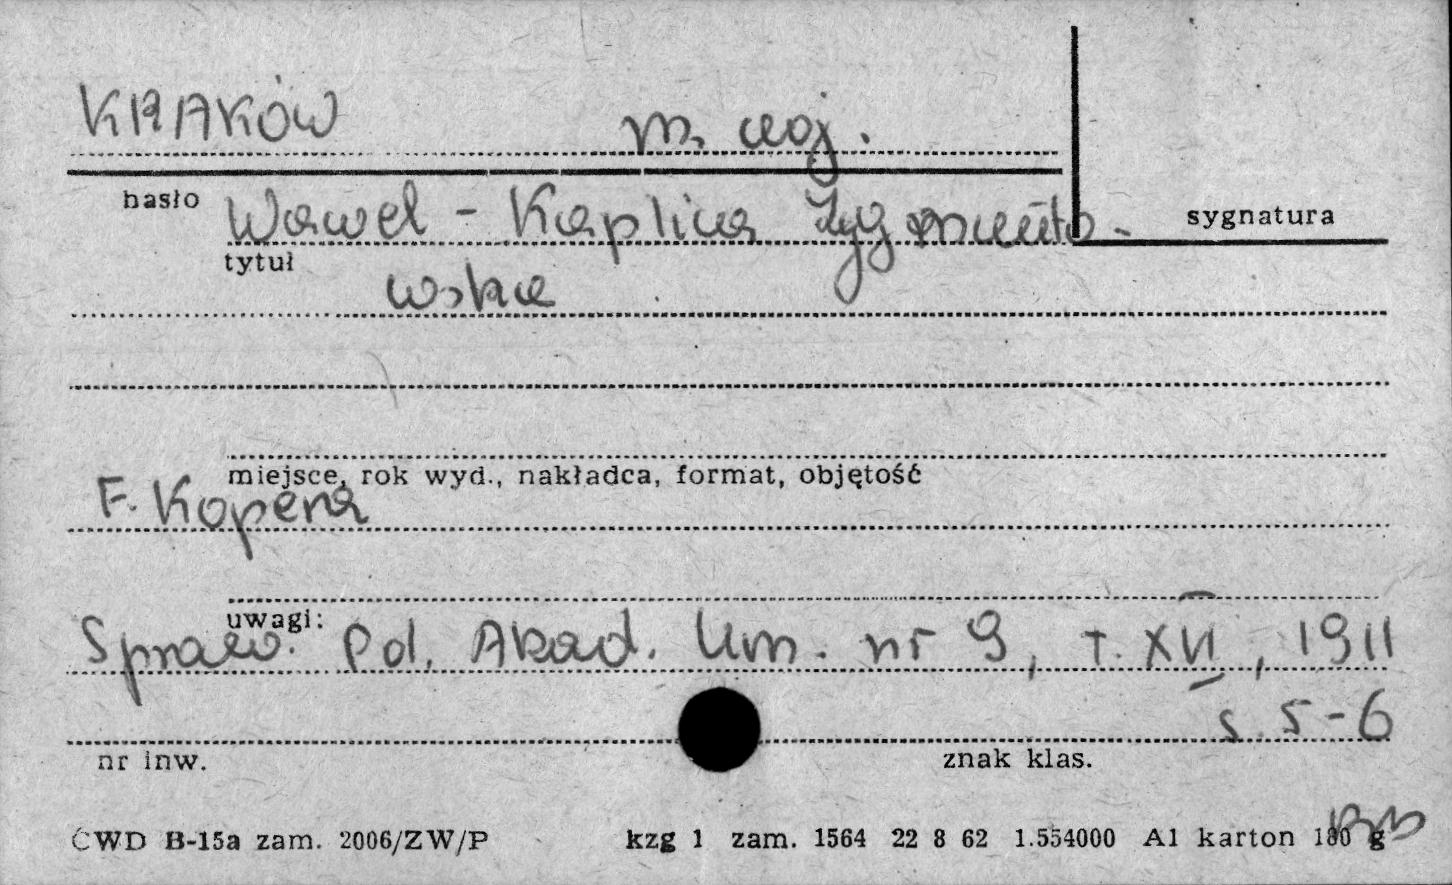 KRAKÓW m. woj.
hasło
sygnatura
Wawel - Kaplica Zygmunto-
tytuł
wska
miejsce, rok wyd., nakładca, format, objętość
F. Kopera
uwagi:
Spraw. Pol. Akad. Um. nr 9, t. XVI, 1911
s. 5-6
nr inw.
znak klas.
CWD B-15a zam. 2006/ZW/P kzg 1 zam. 1564 22 8 62 1.554000 A1 karton 180 g